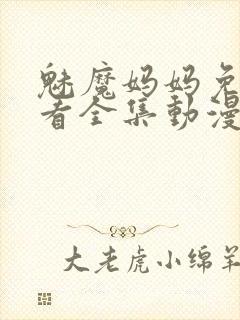 魅魔妈妈免
看全集動漫
大老虎小绵羊